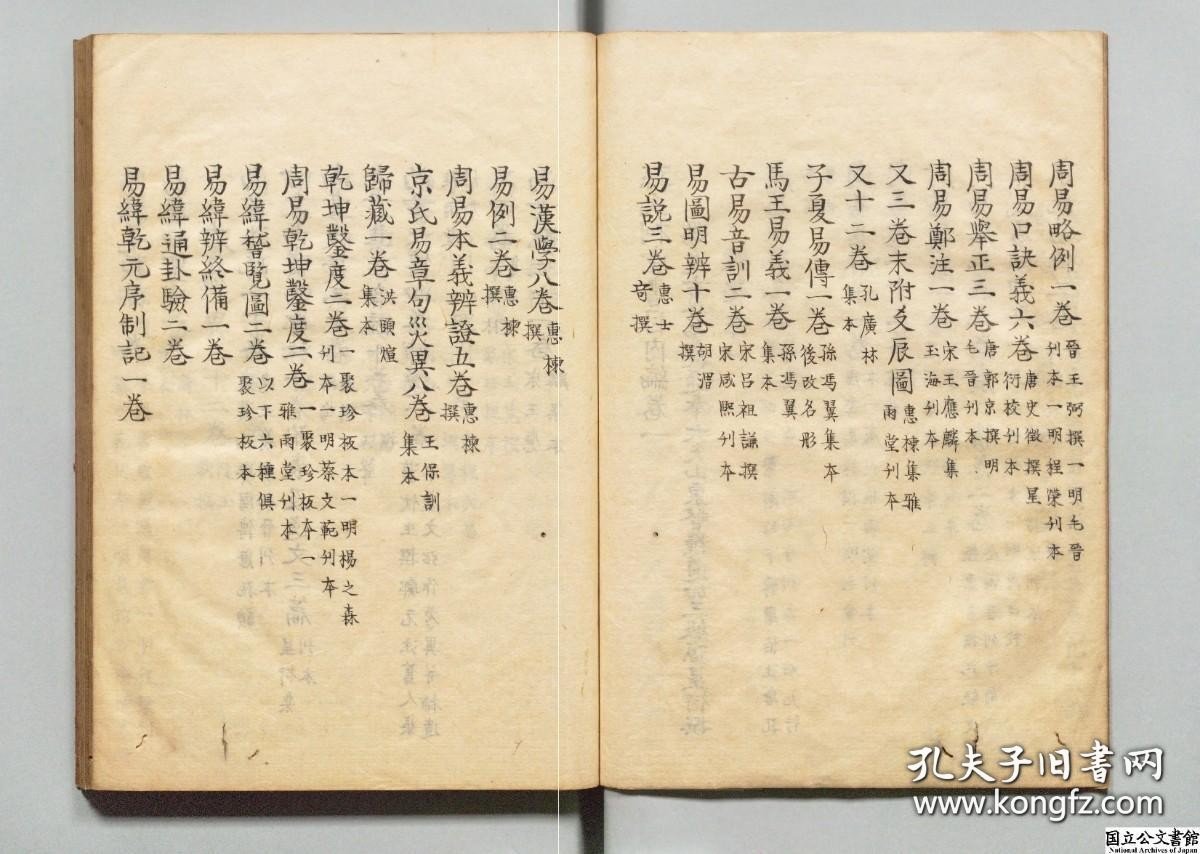 周易略例一卷 晉王弼撰一明毛晉刋本一明程榮刋本
周易口訣義六卷 唐史徵撰星衍校刋本
周易舉正三卷 唐郭京撰明毛晉刋本
周易鄭注一卷 宋王應麟集玉海刋本
又三卷末附爻辰圖 惠棟集雅雨堂刋本
又十二卷 孔廣林集本
子夏易傳一卷 孫馮翼集本後改名彤
馬王易義一卷 孫馮翼集本
古易音訓二卷 宋呂祖謙撰宋咸熙刋本
易圖明辨十卷 胡渭撰
易說三卷 惠士奇撰
易漢學八卷 惠棟撰
易例二卷 惠棟撰
周易本義辨證五卷 惠棟撰
京氏易章句災異八卷 王保訓集本
歸藏一卷 洪頤煊集本
乾坤鑿度二卷 一聚珍板本一明楊之森刋本一明蔡文範刋本
周易乾坤鑿度二卷 一聚珍板本一雅雨堂刋本
易緯稽覽圖二卷 以下六種俱聚珍板本
易緯辨終備一卷
易緯通卦驗二卷
易緯乾元序制記一卷
孔夫子旧书网
www.kongfz.com
国立公文書館
National Archives of Japan